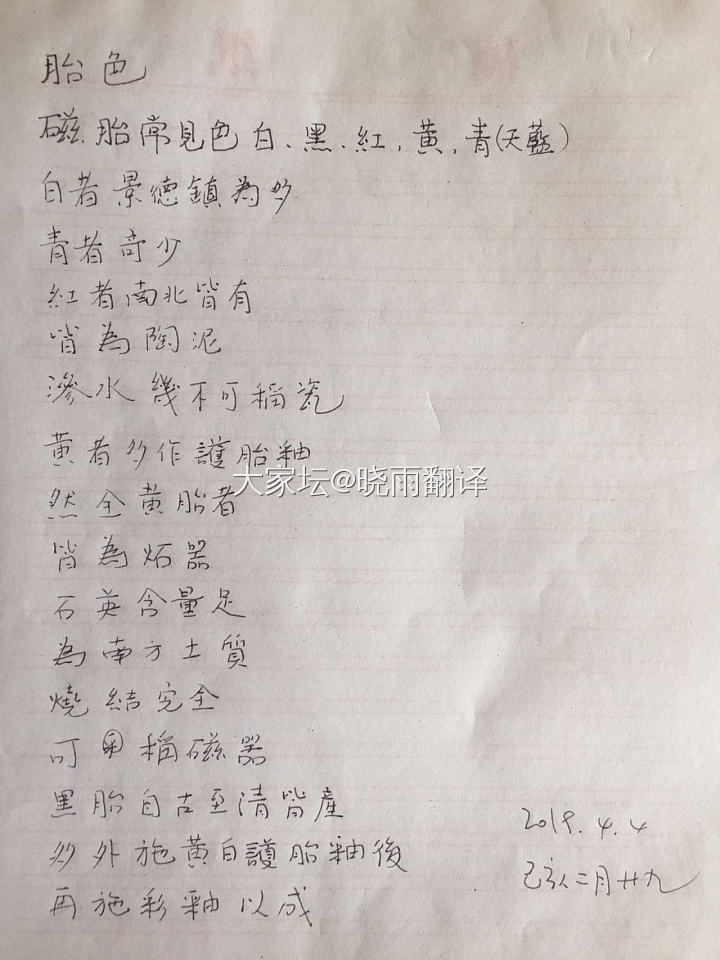 胎色
磁胎常見色白、黑、紅,黃,青(天藍)
白者景德鎮為多
青者奇少
紅者南北皆有
皆為陶泥
滲水幾不可稱瓷
黃者多作護胎釉
大家坛@晓雨翻译
然全黃胎者
皆為炻器
石英含量足
為南方土質
燒結完全
可稱磁器
黑胎自古至清皆產
多外施黃白護胎釉後
再施彩釉以成
2019.4.4
己亥二月廿九